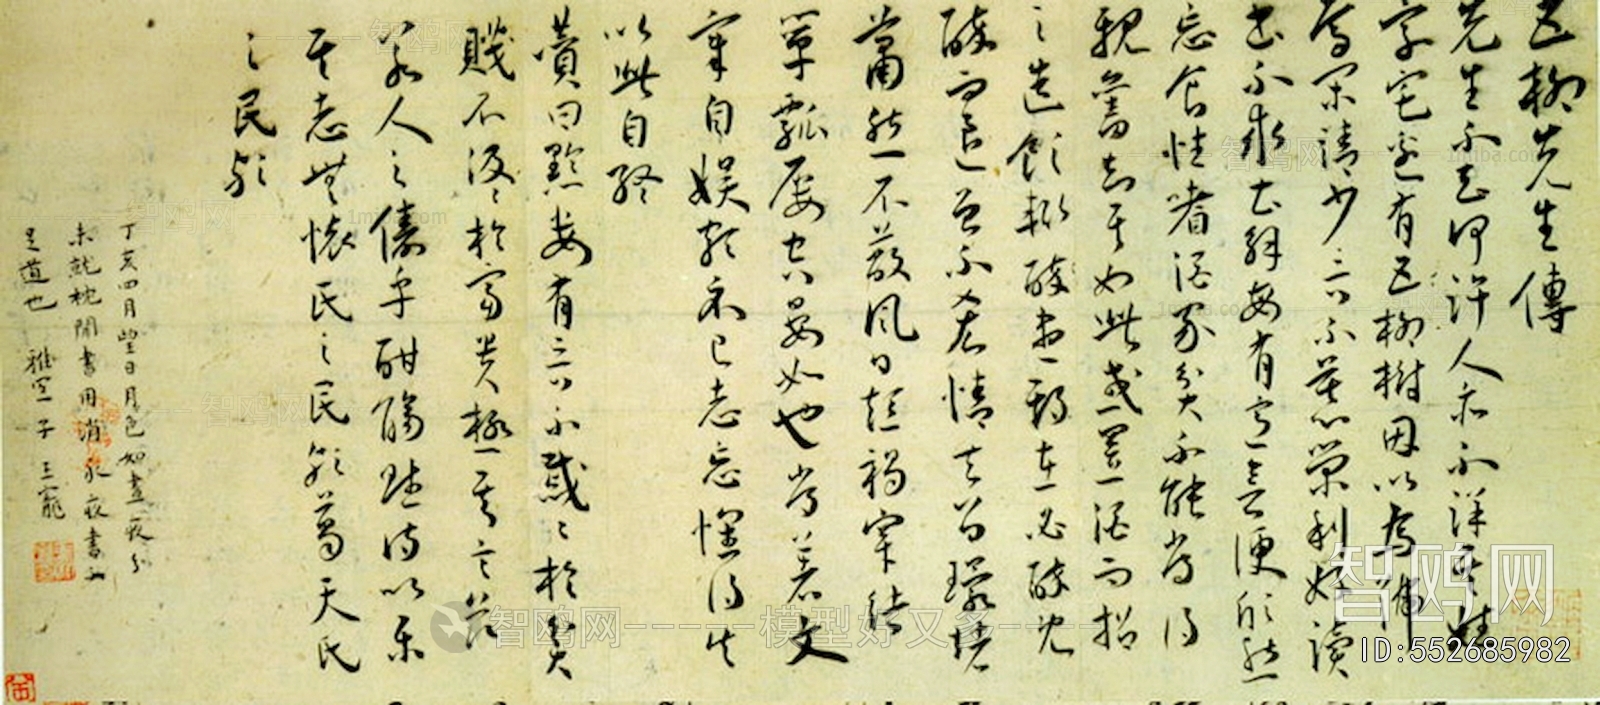 五柳先生傳
先生不知何許人亦不詳其姓
字宅邊有五柳樹因以為號
焉閑靖少言不慕榮利好讀
書不求甚解每有會意便欣然
忘食性嗜酒家貧不能常得
親舊知其如此或置酒而招
之造飲輒醉盡期在必醉既
醉而退曾不吝情去留環堵
蕭然不蔽風日短褐穿結
簞瓢屢空晏如也常著文
章自娛頗示己志忘懷得失
以此自終
贊曰黔婁有言不戚戚於貧
賤不汲汲於富貴極其言茲
若人之儔乎酣觴賦詩以樂
其志無懷氏之民歟葛天氏
之民歟
丁亥四月望日月色如晝夜分
未就枕閒書用消永夜書
是道也 雅宜子王寵
智鸥网-----模型好又多
智鸥网
ID:552685982